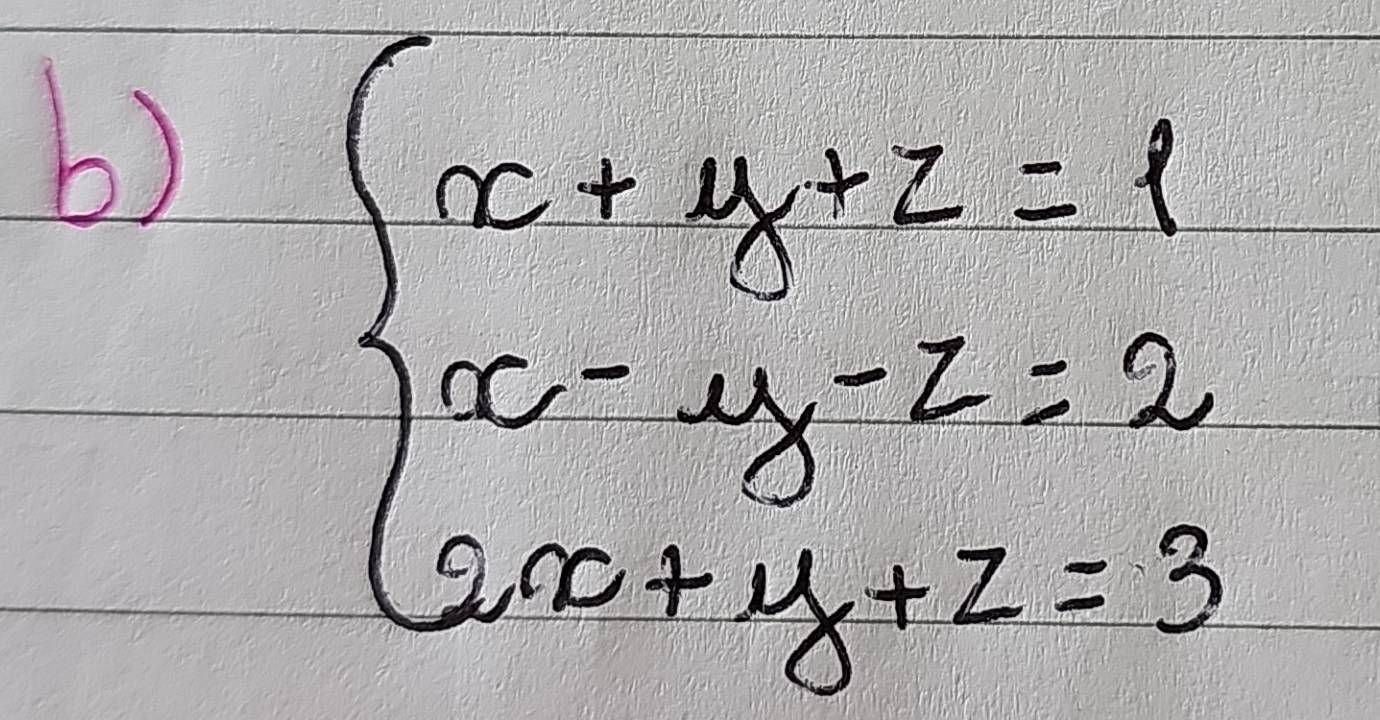 b) x + y + z = 1
x - y - z = 2
2x + y + z = 3